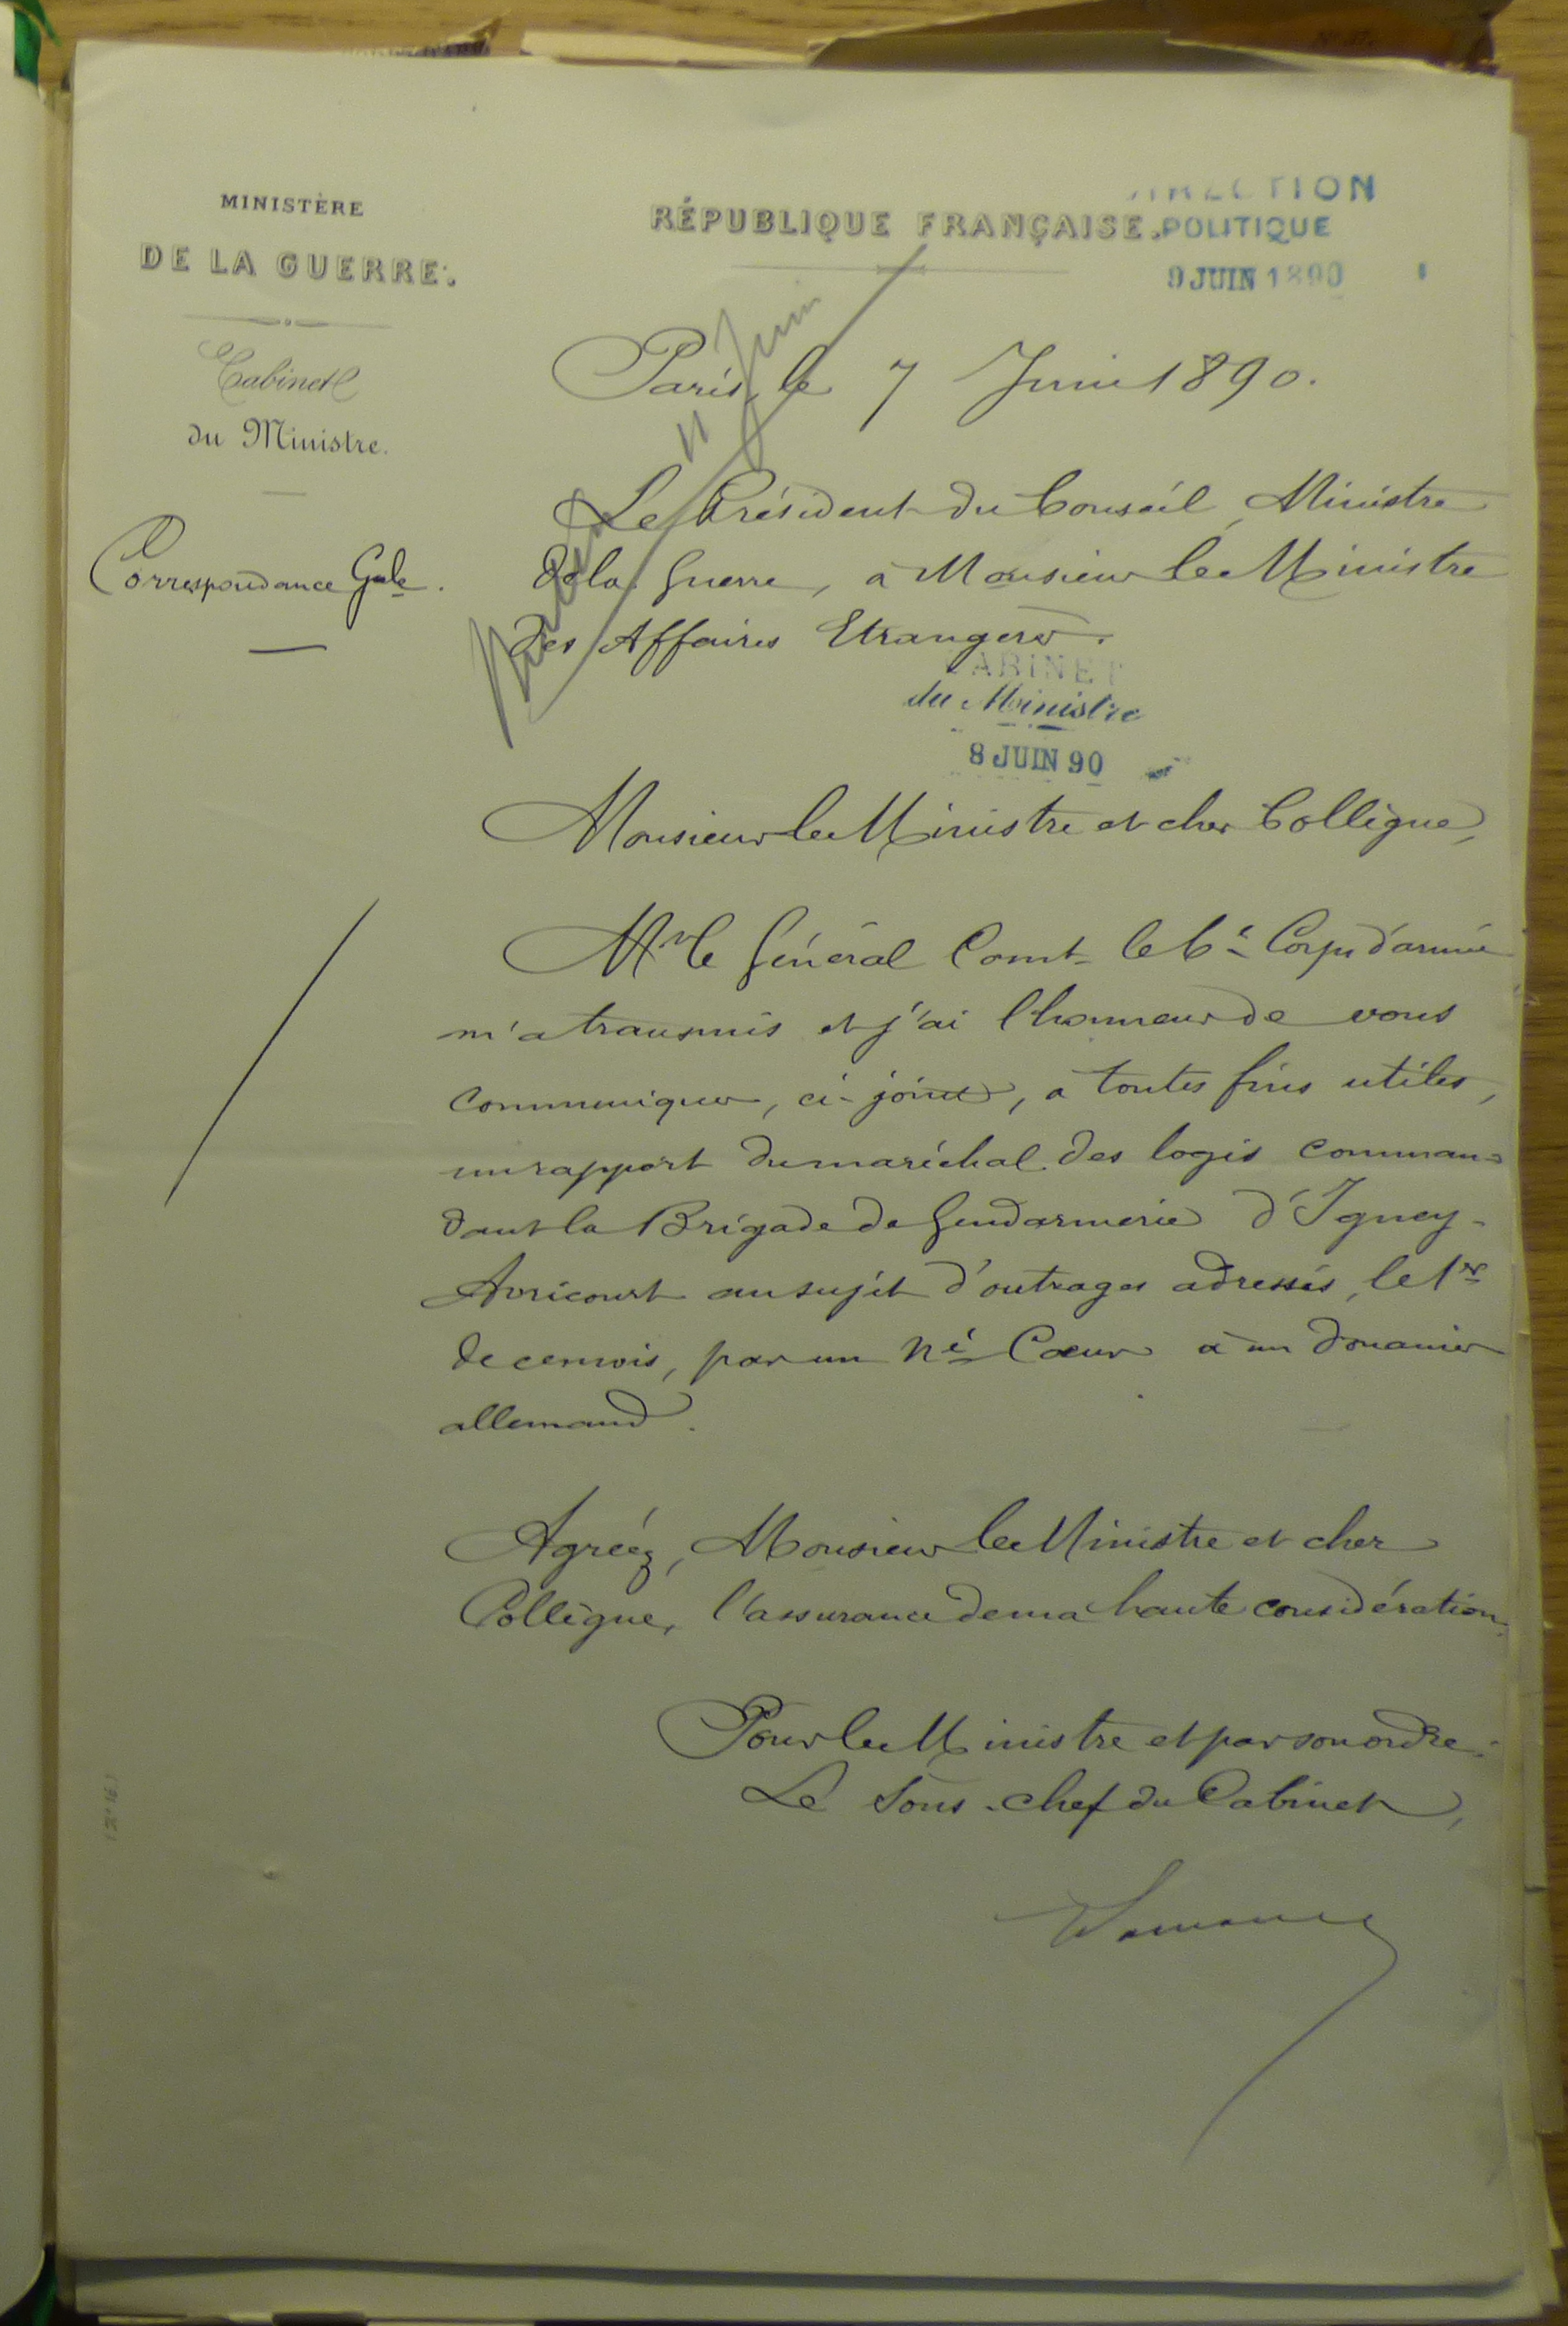 MINISTÈRE
DE LA GUERRE.
Cabinet
du Ministre.
Correspondance Gale.
RÉPUBLIQUE FRANÇAISE.
DIRECTION
POLITIQUE
9 JUIN 1890
11 Juin
Paris, le 7 Juin 1890.
Le Président du Conseil, Ministre
de la Guerre, à Monsieur le Ministre
des Affaires Etrangères.
CABINET
du Ministre
8 JUIN 90
Monsieur le Ministre et cher Collègue,
Mr le Général Comt le 6e Corps d'armée
m'a transmis et j'ai l'honneur de vous
communiquer, ci-joint, à toutes fins utiles,
un rapport du maréchal des logis comman=
dant la Brigade de Gendarmerie d'Igney-
Avricourt au sujet d'outrages adressés, le 1er
de ce mois, par un né Cœur à un douanier
allemand.
Agréez, Monsieur le Ministre et cher
Collègue, l'assurance de ma haute considération.
Pour le Ministre et par son ordre:
Le Sous-chef du Cabinet,